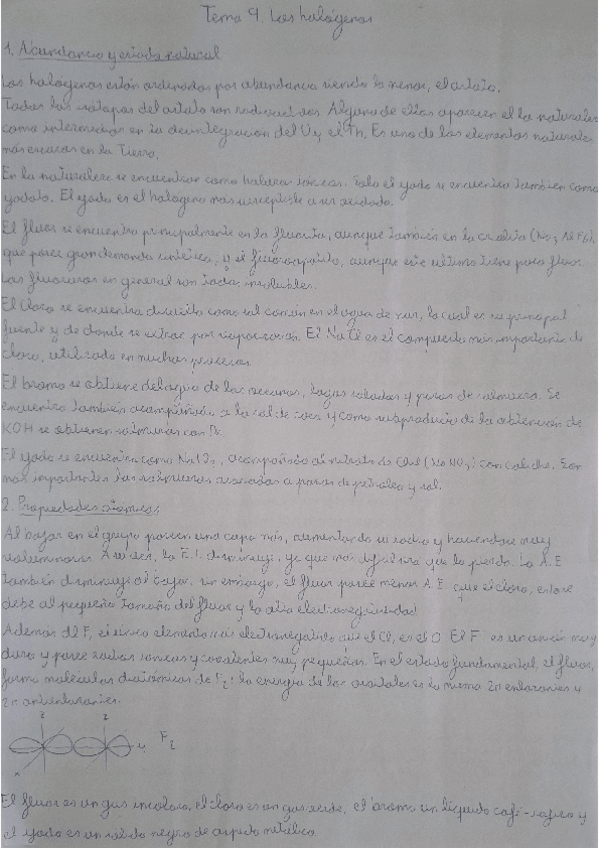 Tema 9. Los halógenos
1. Abundancia y estado natural
Los halógenos están ordenados por abundancia siendo la menor, el astato.
Todos los isótopos del astato son radiactivos. Alguno de ellos aparecen el la naturaleza
como intermedios en la desintegración del U y el Th. Es uno de los elementos naturales
más escasos en la Tierra.
En la naturaleza se encuentran como haluros iónicos. Solo el yodo se encuentra también como
yodato. El yodo es el halógeno más susceptible a ser oxidado.
El fluor se encuentra principalmente en la fluorita, aunque también en la criolita (Na3 Al F6),
que posee gran demanda sintética, y el fluoroapatito, aunque este último tiene poco fluor.
Los fluoruros en general son todos insolubles.
El cloro se encuentra disuelto como sal común en el agua de mar, la cual es su principal
fuente y de donde se extrae por evaporación. El NaCl es el compuesto más importante de
cloro, utilizado en muchos procesos.
El bromo se obtiene del agua de los océanos, lagos salados y pozos de salmuera. Se
encuentra también acompañando a la sal de roca y como subproducto de la obtención de
KOH se obtienen salmueras con Br.
El yodo se encuentra como NaIO3, acompañado al nitrato de Chile (NaNO3) con caliche. Son
más importantes las salmueras asociadas a pozos de petróleo y sal.
2. Propiedades atómicas
Al bajar en el grupo poseen una capa más, aumentando su radio y haciéndose muy
voluminosos. A su vez, la E.I. disminuye, ya que más fácil será que lo pierda. La A.E
también disminuye al bajar, sin embargo, el fluor posee menor A.E. que el cloro, esto se
debe al pequeño tamaño del fluor y la alta electronegatividad.
Además del F, el único elemento más electronegativo que el Cl, es el O. El F⁻ es un anión muy
duro y posee radios iónicos y covalentes muy pequeños. En el estado fundamental, el fluor,
forma moléculas diatómicas de F2: la energía de los orbitales es la misma 2π enlazantes y
2π antienlazantes.
z z
y F2
x
El fluor es un gas incoloro, el cloro es un gas verde, el bromo un líquido café-rojizo y
el yodo es un sólido negro de aspecto metálico.